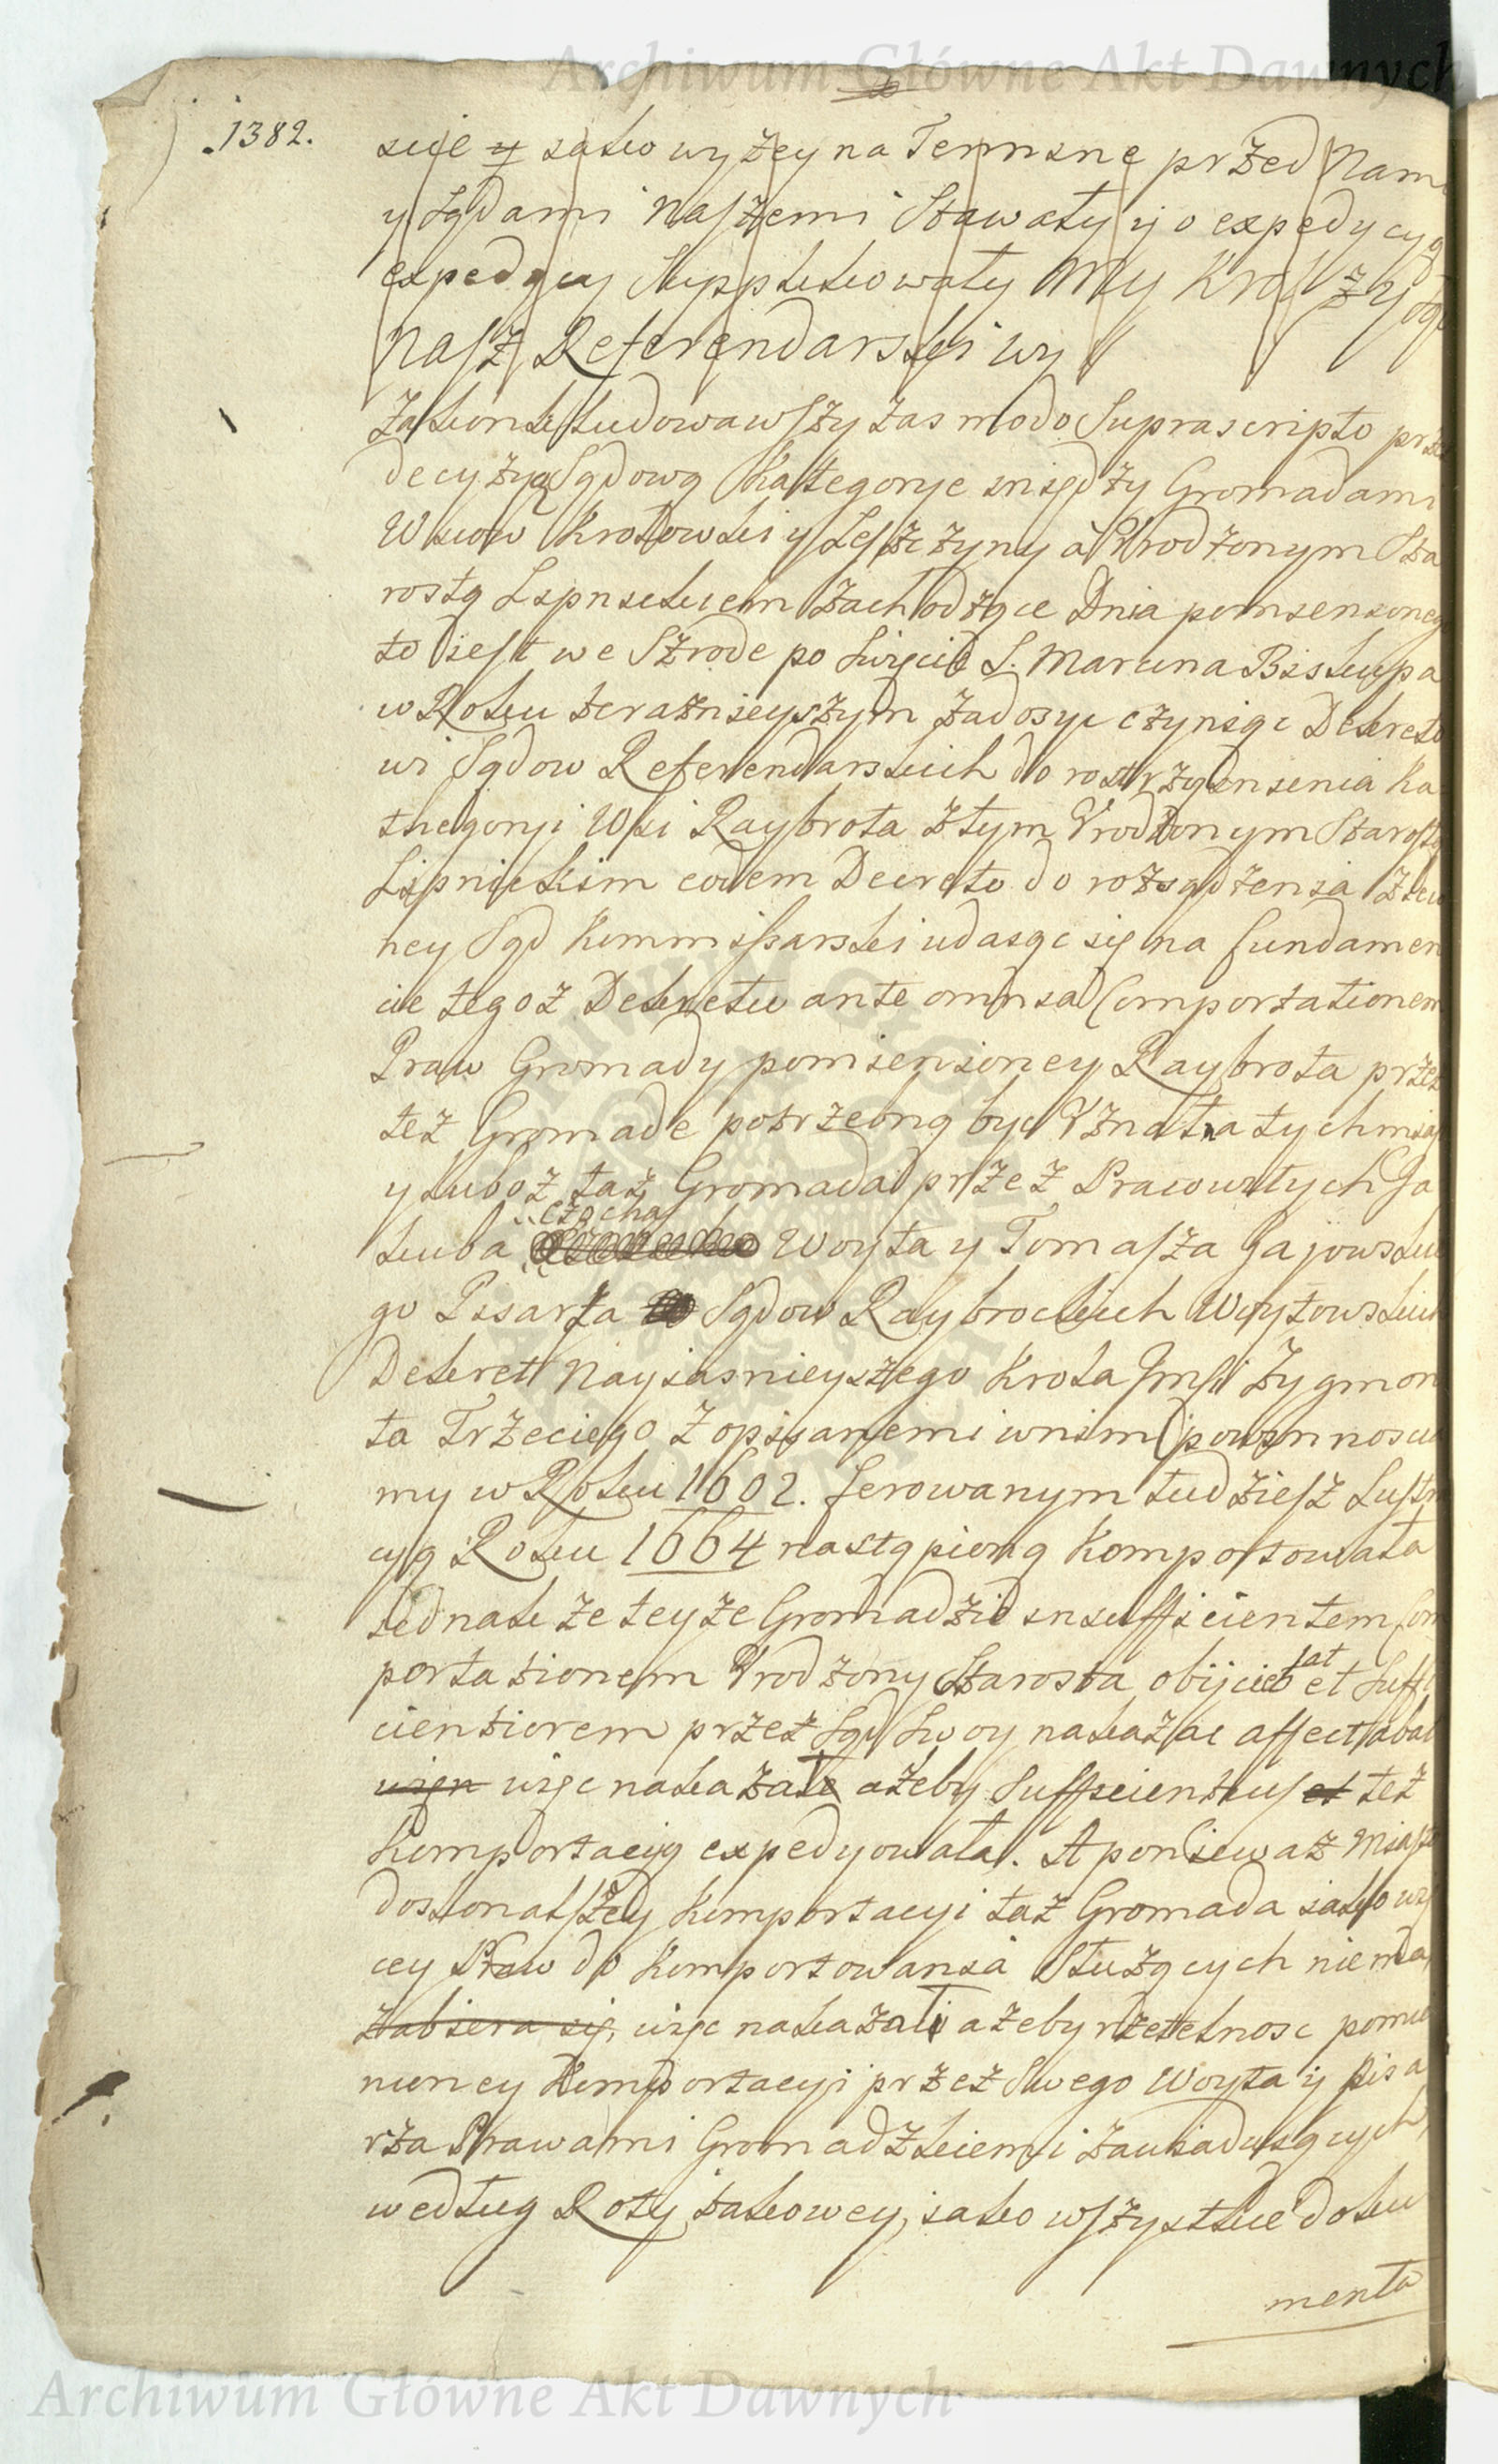 Archiwum Główne Akt Dawnych
1382.
scie y iako wyżey na Terminie przed Nami
y Sądami Naszemi Stawały y o expedycyą
expedycyi Supplikowały My Krol z
Nasz Referendarski wy
Zakonkludowawszy zas modo Suprascripto przez
decyzyą Sądową Kategorye między Gromadami
Wsiow Krolowki y Leszczyny à Urodzonym Sta
rostą Lipnickiem zachodzące Dnia pomienioneg
to iest we Szrode po Swięcie S. Marcina Biskupa
w Roku teraznieyszym zadosyc czyniąc Dekreto
wi Sądow Referendarskich do rostrzygnienia Ka
thegoryi Wsi Raybrota z tym Urodzonym Starostą
Lipnickim eodem Decreto do rozsądzenia zleco
ney Sąd Kommissarski udaiąc się na fundamen
cie tegoz Dekretu ante omnia Comportationem
Praw Gromady pomienioney Raybrota przez
tez Gromade potrzebną byc Uznał a tychmiast
y lubo z taż Gromada przez Pracowitych Ja
kuba Czocha Woyta y Tomasza Gajowskie
go Pisarza Sądow Raybrockich Woytowskich
Dekret Nayiasnieyszego Krola Jmsci Zygmon
ta Trzeciego z opisanemi w nim powinnoscia
my w Roku 1602. ferowanym tudziesz Lustra
cyą Roku 1664 nastąpioną Komportowała
iednak ze teyze Gromadzie insufficientem Com
portationem Urodzony Starosta obijciebat et Suffi
cientiorem przez Sąd Swoy nakazac affectabat
więc nakazali ażeby Sufficientius et też
Komportacią expedyowała. A poniewaz miasto
doskonalszey Komportacyi taż Gromada iako wię
cey Praw do Komportowania Służących niema
zabiera się, więc nakazali ażeby rzetelnosc pomie
nioney Komportacyi przez Swego Woyta y Pisa
rza Prawami Gromadzkiemi zawiaduiących
według Roty takowey, iako wszystkie doku
menta
Archiwum Główne Akt Dawnych